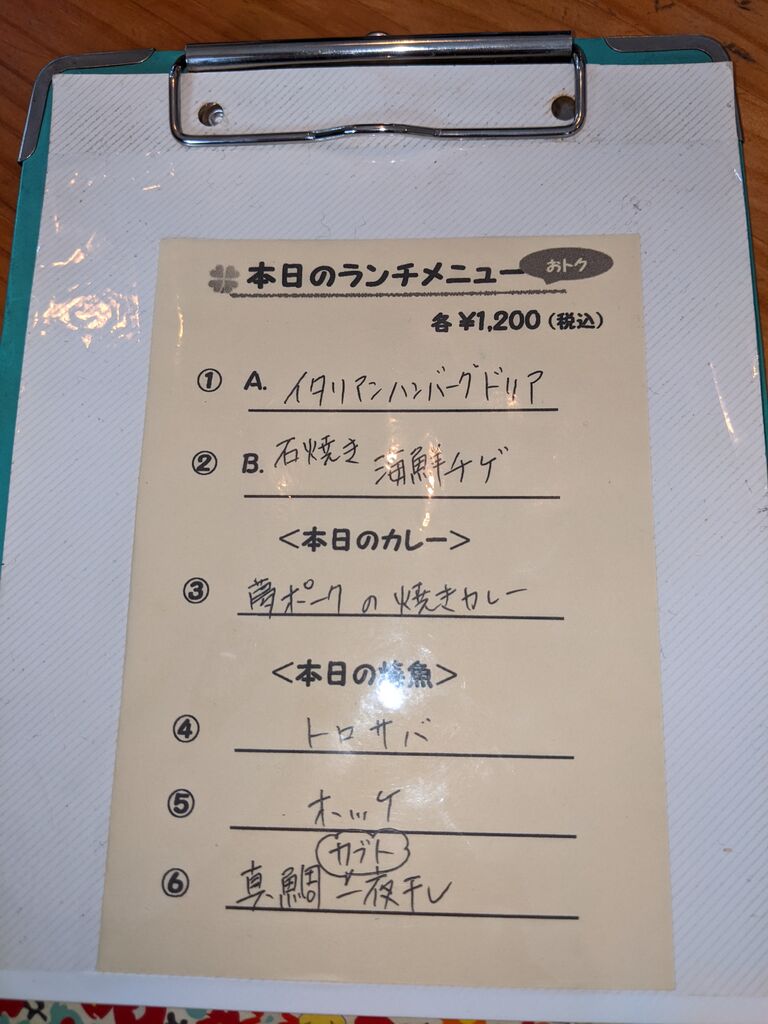 本日のランチメニュー おトク
各 ¥1,200 (税込)
① A. イタリアンハンバーグドリア
② B. 石焼き 海鮮チゲ
<本日のカレー>
③ 夢ポークの焼きカレー
<本日の焼魚>
④ トロサバ
⑤ ホッケ
カブト
⑥ 真鯛 一夜干し